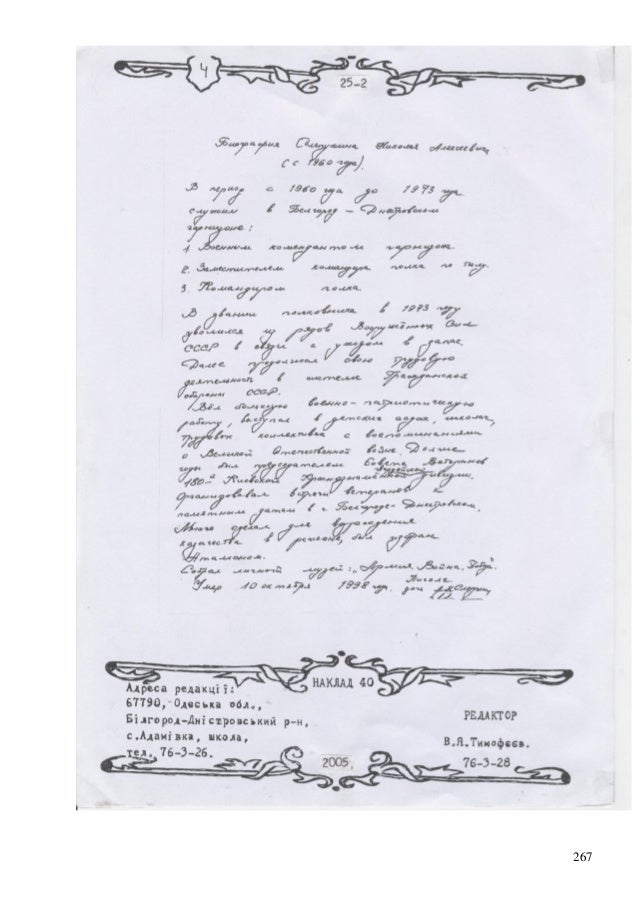 4
25-2
Биография Николая Алексеевича
(с 1960 года).
В период с 1960 года до 1973 года
служил в Белгород – Днестровском
гарнизоне:
1. Военным комендантом гарнизона.
2. Заместителем командира полка по тылу.
3. Командиром полка.
В звании полковника в 1973 году
уволился из рядов Вооружённых Сил
СССР в связи с уходом в запас.
Далее продолжал свою трудовую
деятельность в системе Гражданской
обороны СССР.
Вёл большую военно-патриотическую
работу, выступал в детских садах, школах,
трудовых коллективах с воспоминаниями
о Великой Отечественной войне. Долгие
годы был председателем Совета Ветеранов
180-й Киевской Краснознамённой дивизии.
Организовывал встречи ветеранов к
памятным датам в г. Белгороде-Днестровском.
Много сделал для возрождения
казачества в регионе, был избран
Атаманом.
Собрал личный музей: "Армия. Война.
Умер 10 октября 1998 года.
Писала дочь
НАКЛАД 40
Адреса редакції:
67790, Одеська обл.,
Білгород-Дністровський р-н,
с.Адамівка, школа,
тел. 76-3-26.
РЕДАКТОР
В.Я.Тимофєєв.
76-3-28
2005.
267